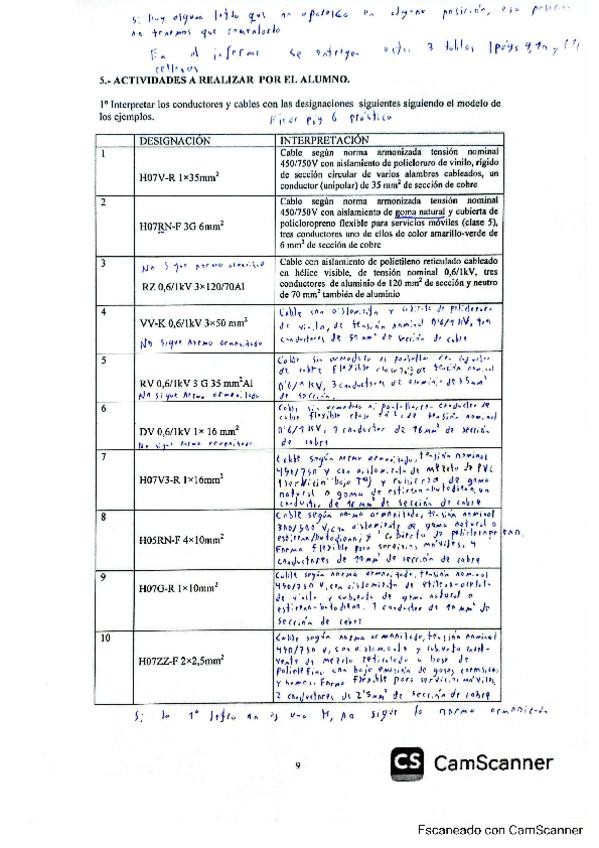 Si hay alguna letra que no aparezca en alguna posición, esa posición
no tenemos que comentarlo
En el informe se entregan estas 3 tablas (págs 9, 10 y 11)
rellenas
5.- ACTIVIDADES A REALIZAR POR EL ALUMNO.
1º Interpretar los conductores y cables con las designaciones siguientes siguiendo el modelo de
los ejemplos.
pág 6 práctica
DESIGNACIÓN INTERPRETACIÓN
1
H07V-R 1×35mm²
Cable según norma armonizada tensión nominal
450/750V con aislamiento de policloruro de vinilo, rígido
de sección circular de varios alambres cableados, un
conductor (unipolar) de 35 mm² de sección de cobre
2
H07RN-F 3G 6mm²
Cable según norma armonizada tensión nominal
450/750V con aislamiento de goma natural y cubierta de
policloropreno flexible para servicios móviles (clase 5),
tres conductores uno de ellos de color amarillo-verde de
6 mm² de sección de cobre
3
No sigue norma armonizada
RZ 0,6/1kV 3×120/70Al
Cable con aislamiento de polietileno reticulado cableado
en hélice visible, de tensión nominal 0,6/1kV, tres
conductores de aluminio de 120 mm² de sección y neutro
de 70 mm² también de aluminio
4
VV-K 0,6/1kV 3×50 mm²
No sigue norma armonizada
Cable con aislamiento y cubierta de policloruro
de vinilo, de tensión nominal 0'6/1 kV, tres
conductores de 50 mm² de sección de cobre
5
RV 0,6/1kV 3 G 35 mm²Al
No sigue norma armonizada
Cable sin armadura ni pantalla con
de cobre flexible clase de tensión nominal
0'6/1 kV, 3 conductores de aluminio de 35mm²
de sección.
6
DV 0,6/1kV 1× 16 mm²
No sigue norma armonizada
Cable sin armadura ni pantalla con conductor de
cobre flexible clase de tensión nominal
0'6/1 kV, 1 conductor de 16mm² de sección
de cobre
7
H07V3-R 1×16mm²
Cable según norma armonizada, tensión nominal
450/750 V con aislamiento de mezcla de PVC
(servicio bajo Tª) y cubierta de goma
natural o goma de estireno-butadieno, un
conductor de 16 mm² de sección de cobre
8
H05RN-F 4×10mm²
Cable según norma armonizada, tensión nominal
300/500 V, con aislamiento de goma natural o
estireno/butadieno y cubierta de policloropreno.
Forma flexible para servicios móviles, 4
conductores de 10mm² de sección de cobre
9
H07G-R 1×10mm²
Cable según norma armonizada, tensión nominal
450/750 V, con aislamiento de etileno-acetato
de vinilo y cubierta de goma natural o
estireno-butadieno. 1 conductor de 10 mm² de
sección de cobre
10
H07ZZ-F 2×2,5mm²
Cable según norma armonizada, tensión nominal
450/750 V, con aislamiento y cubierta
de mezcla reticulada a base de
poliolefina con baja emisión de gases corrosivos
y humos. Forma flexible para servicios móviles
2 conductores de 2'5mm² de sección de cobre
Si la 1ª letra no es una H, no sigue la norma armonizada
9
CS CamScanner
Escaneado con CamScanner